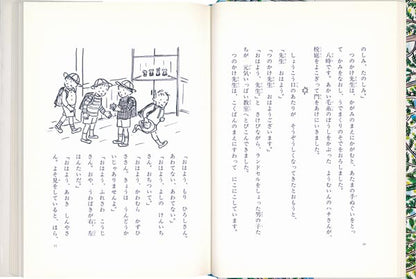 のしみ、たのしみ。
つのかけ先生は、かがみのまえにかがむと、あたまの手ぬぐいをとっ
て、かみをなおし、うでまくりのそでをおろしました。
八時です。あかい毛糸のぼうしをかぶった、ようむいんのハチさんが、
校庭をよこぎって門をあけにいきました。
しょうこう口のあたりが、そうぞうしくなってきたとおもうと、
「先生、おはよう。」
「つのかけ先生、おはようございます。」
「おはよう、先生。」と、さけびながら、ランドセルをしょった男の子た
ちが、元気いっぱい教室へとびこんできました。
つのかけ先生は、こくばんのまえにすわって、にこにこしています。
「おはよう、もり ひろしさん。
あわてない、あわてない。」
「おはよう、よしの けんいち
さん。おちついて。」
「おはよう、かわむら かずひ
さん。
いとこありませんよ。」
「おはよう、ふれさわ こうじ
さん。おや、うわばきが右、左
はんたいだ。」
「おはよう、あおき しんやさ
ん。よそ見をしていると、ほら、